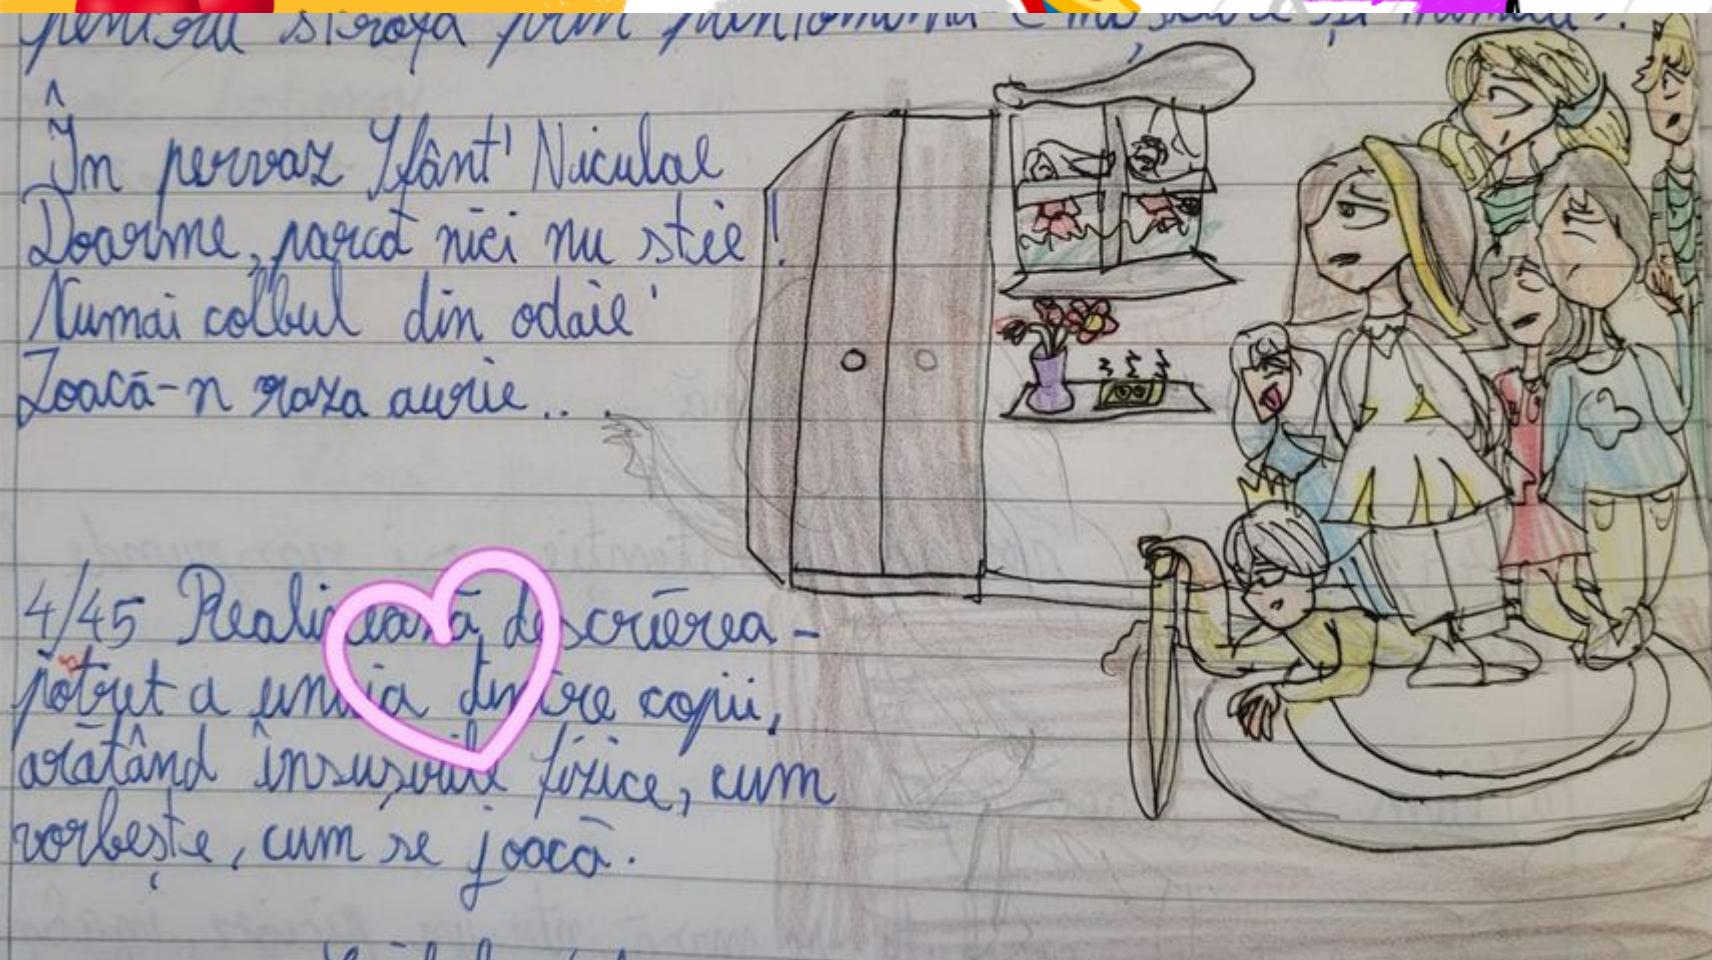 pentru strofa prin pantomimă (mișcare și mimică).
În pervaz Sfânt' Niculae
Doarme, parcă nici nu știe!
Numai colbul din odaie
Joacă-n raza aurie...
4/45 Realizează descrierea -
potret a unuia dintre copii,
arătând însușirile fizice, cum
vorbește, cum se joacă.